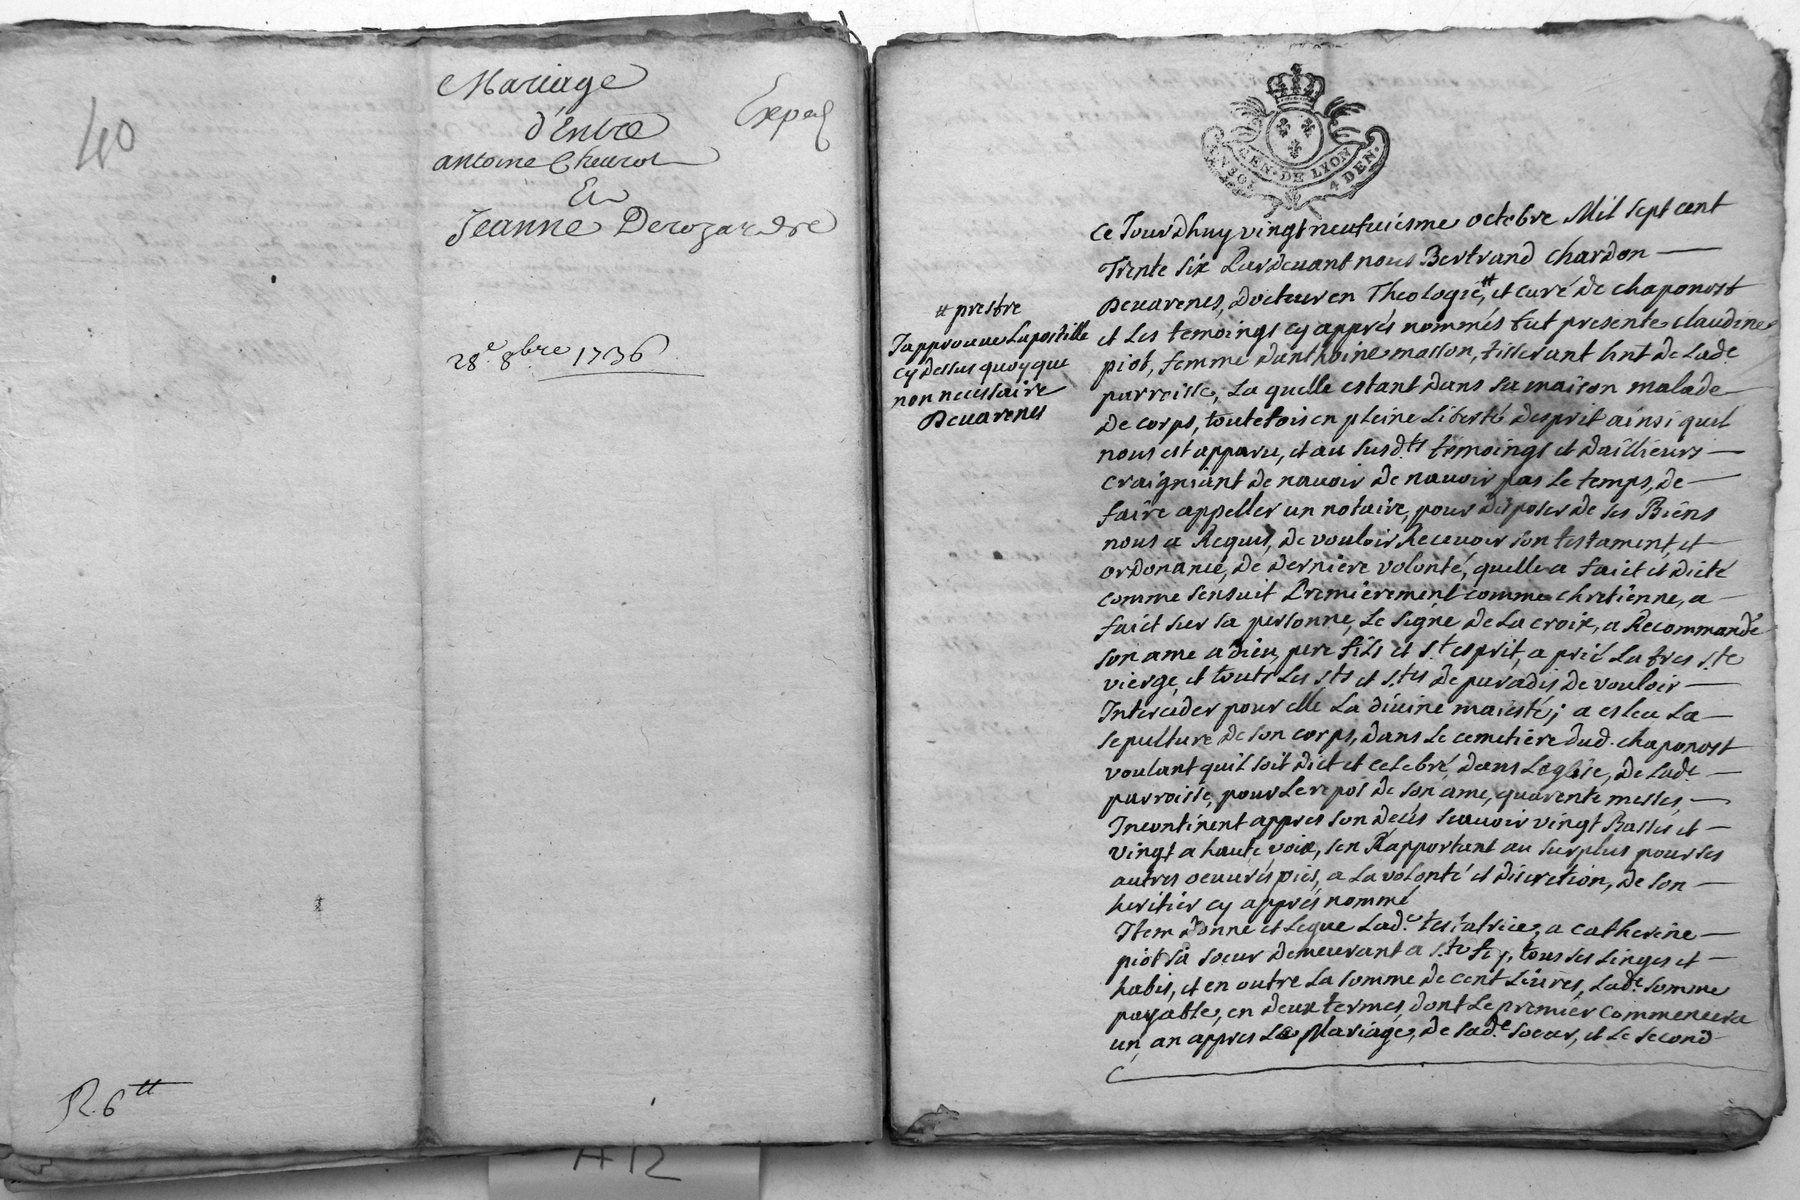 40
Mariage
d'Entre
Exped
antoine Cheurot
Et
Jeanne Derozardre
28.e 8bre 1736
R. 6tt
GEN. DE LYON
4 DEN.
ce Jourdhuy vingt neufviesme octobre Mil sept cent
Trente six Pardevant nous Bertrand chardon
Devarenes, Docteur en Theologie,# et curé de chaponost
et les temoings cy apprés nommés fut presente claudine
piot, femme danthoine masson, tisserant hnt de lade
parroisse, La quelle estant dans sa maison malade
de corps, toutefois en pleine liberté desprit ainsi quil
nous est apparu, et au susd.ts temoings et dailheurs
craigniant de navoir de navoir pas le temps, de
faire appeller un notaire, pour disposer de ses Biens
nous a Requis, de vouloir Recevoir son testament, et
ordonance, de derniere volonté, quelle a faict et dicté
comme sensuit Premierement comme chretienne, a
faict sur sa personne, le signe de La croix, a Recommandé
son ame a dieu, pere fils et s.t esprit, a prié la tres s.te
vierge, et touts les s.ts et s.tes de paradis, de vouloir
Interceder pour elle La divine maiesté; a esleu La
sepulture de son corps, dans le cemetiere dud. chaponost
voulant quil soit dict et celebré, dans Leglise, de lade
parroisse, pour le repos de son ame, quarente messes,
Incontinent appres son decés scavoir vingt Basses et
vingt a haute voix, sen Rapportant au surplus pour ses
autres oeuvres pies, a La volonté et discretion, de son
heritier cy apprés nommé
Item donne et legue Lad.e testatrice, a catherine
piot sa soeur demeurant a s.te foy, tous ses linges et
habis, et en outre La somme de cent Livres, Lade somme
payable, en deux termes, dont Le premier commencera
un, an appres Le Mariage, de sad.e soeur, et le second
# prestre
Japprouve Lapostille
cy dessus quoyque
non necessaire
Devarenes
A12